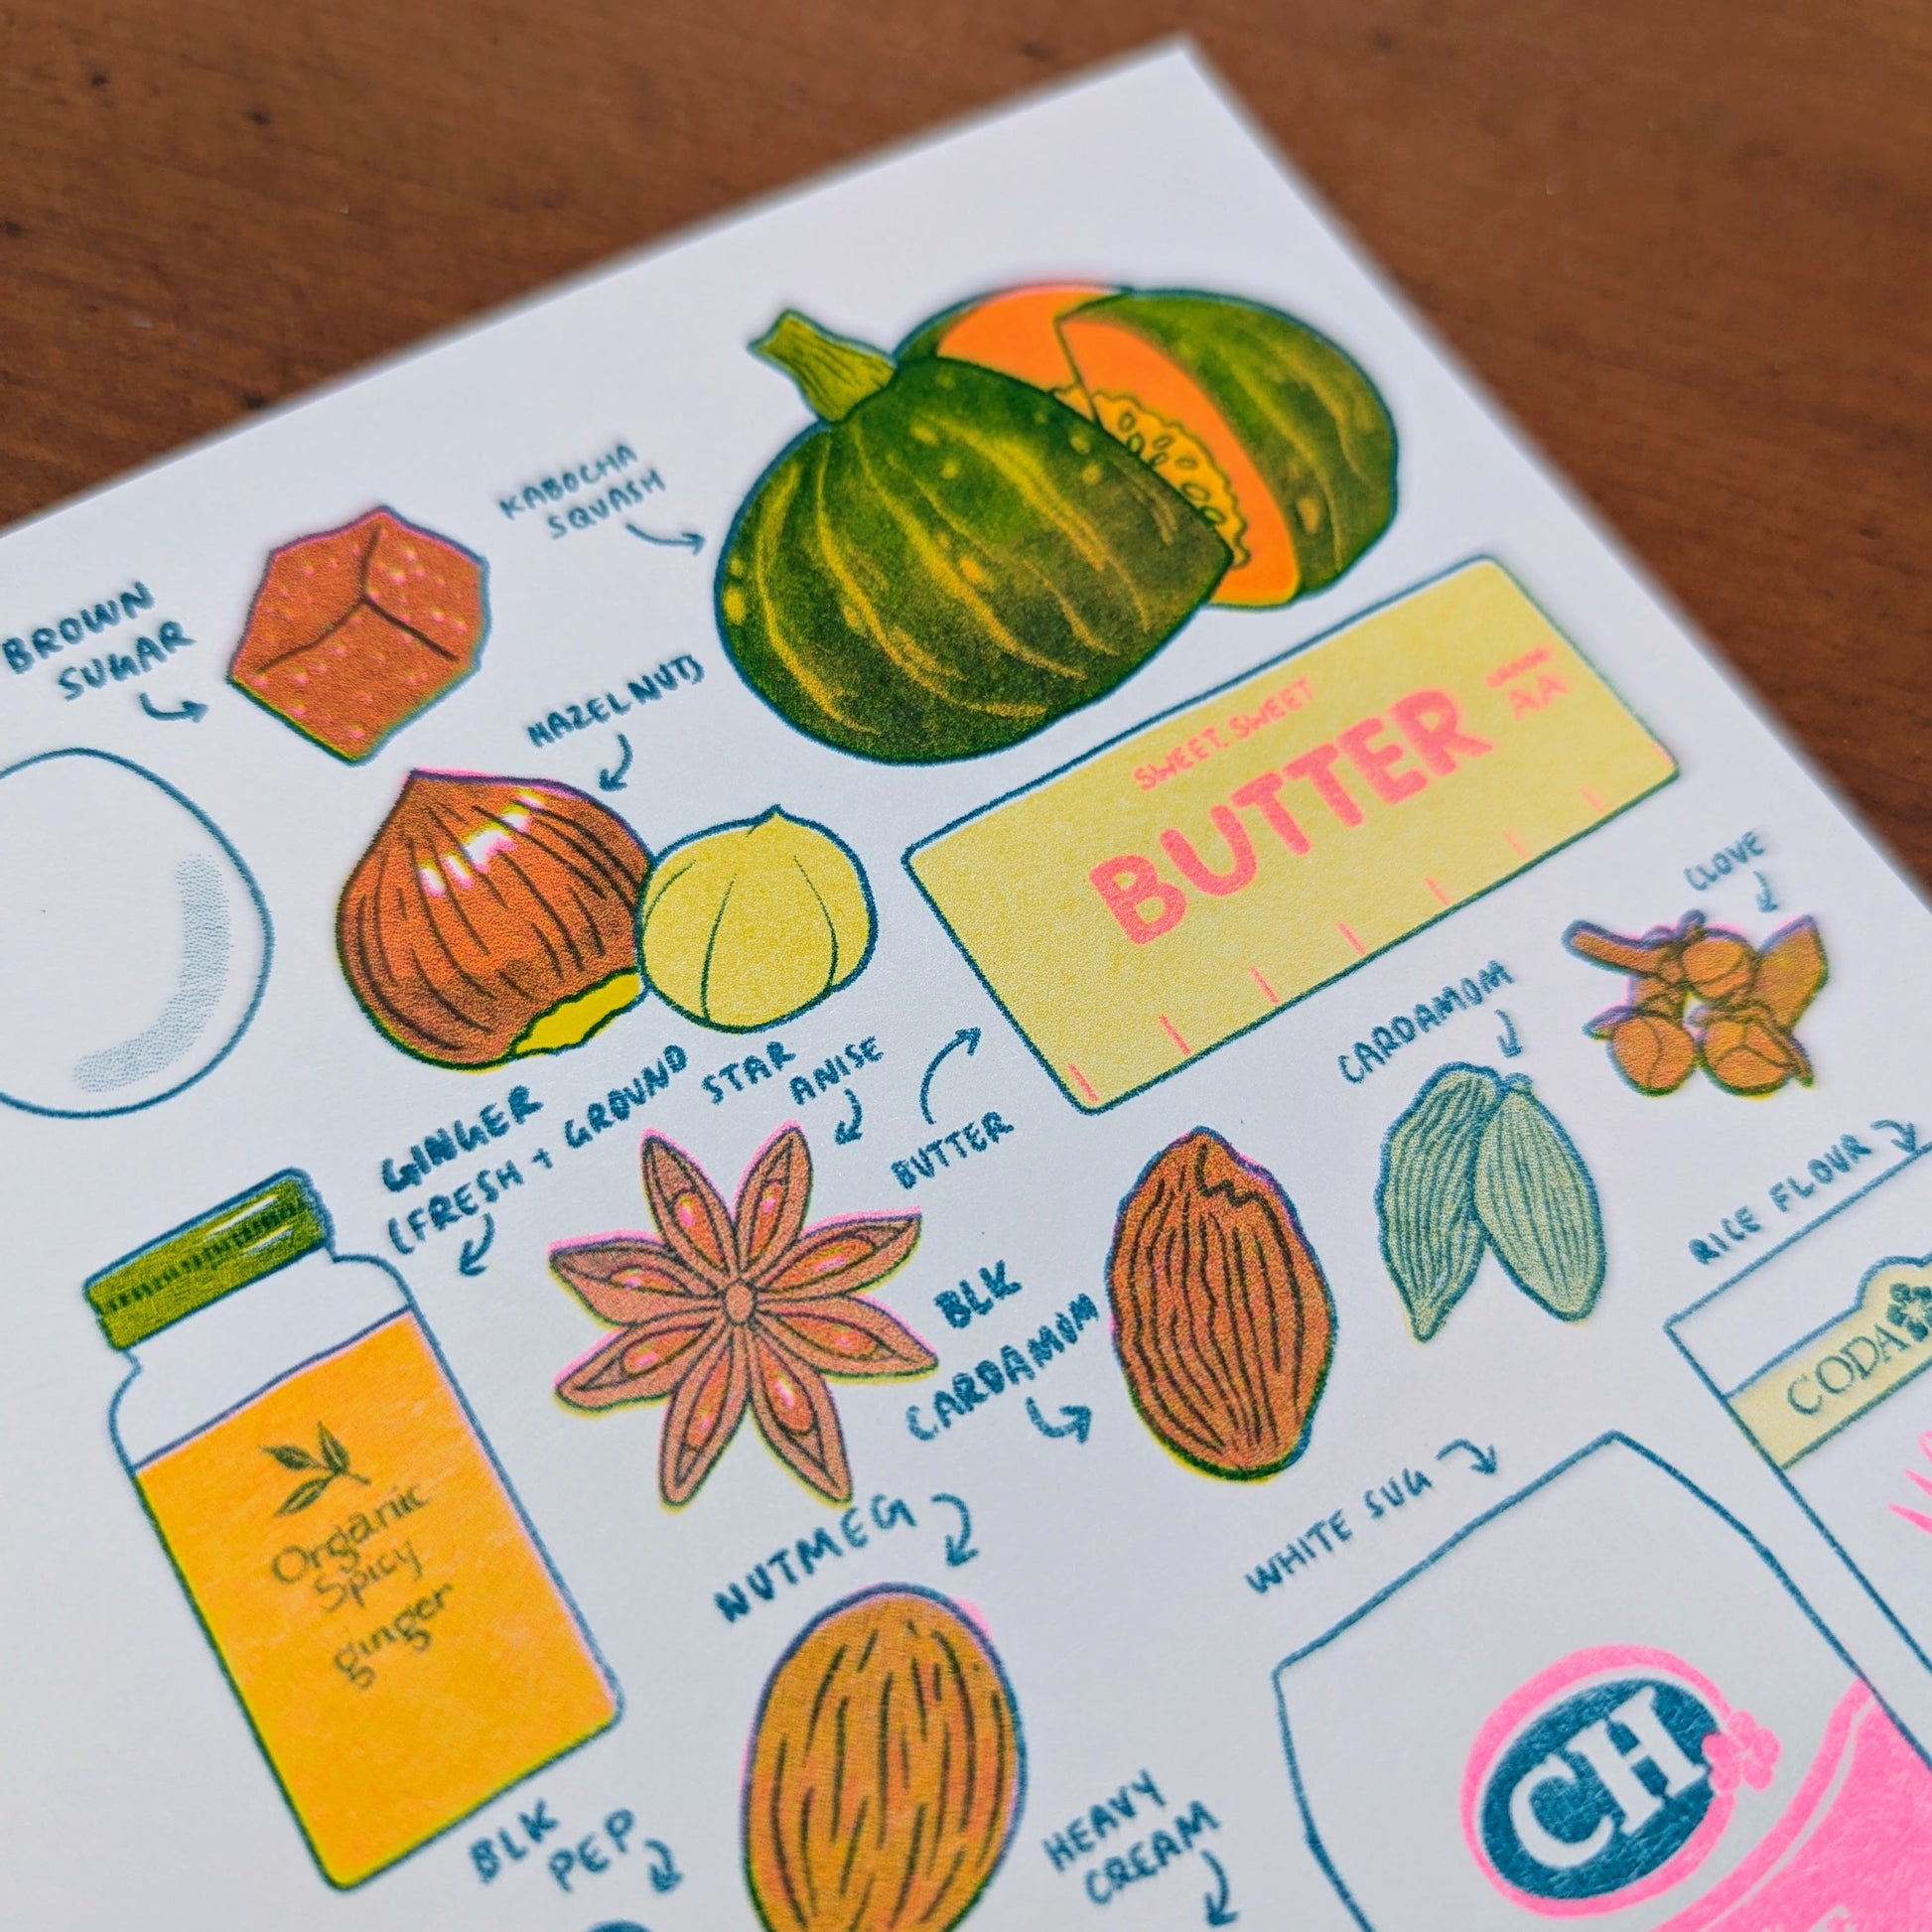 KABOCHA
SQUASH
BROWN
SUGAR
HAZELNUTS
SWEET, SWEET
BUTTER
AA
CLOVE
CARDAMOM
STAR
ANISE
GINGER
(FRESH + GROUND
BUTTER
RICE FLOUR
BLK
CARDAMOM
CODA
Organic
Spicy
ginger
NUTMEG
WHITE SUG
CH
BLK
PEP
HEAVY
CREAM